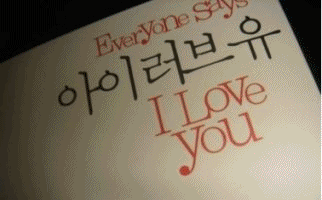 Everyone Says
아이러브유
I Love
you